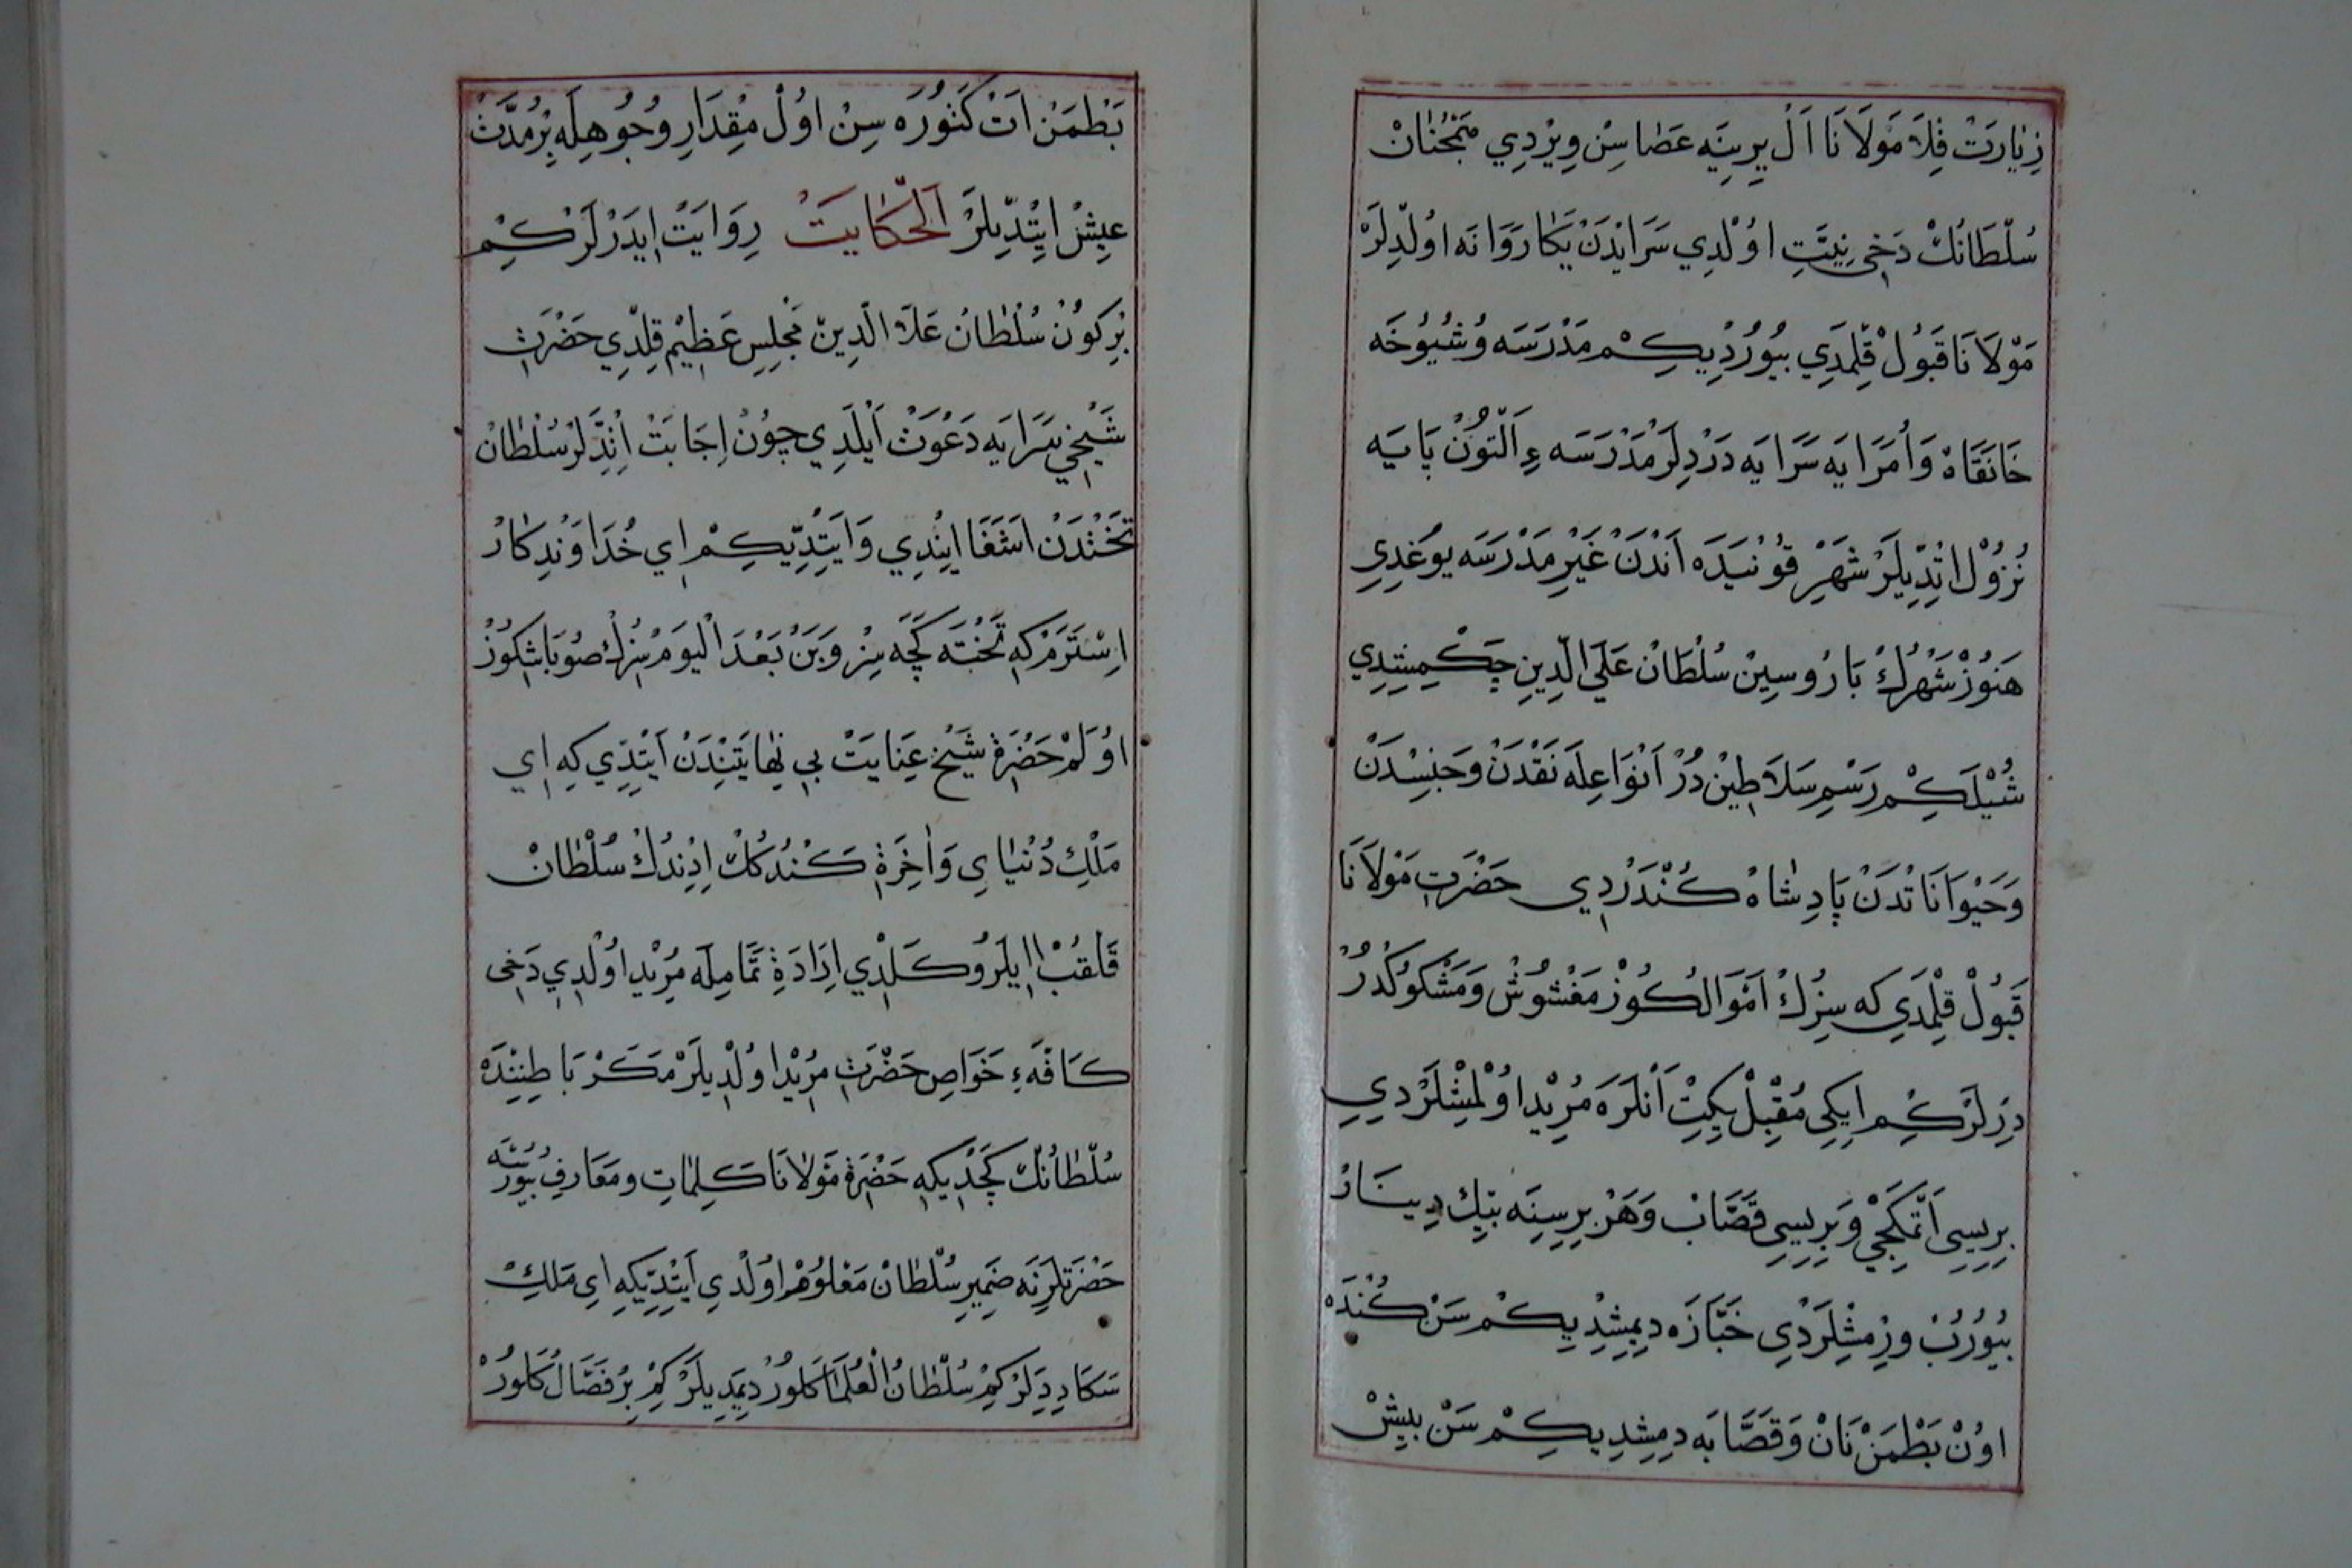 زِيٰارَتْ قِلَا مَوْلَانَا اَلْ يِرِينَه عَصَاسِنْ وِيرْدِي
سُلْطَانُكْ دَخِي نِيَّتِ اوُلْدِي سَرَايْدَنْ يَكَا رَوَانَه اوُلْدِلَرْ
مَوْلَانَا قَبُولْ قِلْمَدِي بُيُورْدِيكِمْ مَدْرَسَه وُشُيُوخَه
خَانَقَاهْ وَاُمَرَايَه سَرَايَه دَرْدِلَرْ مَدْرَسَهءِ اَلْتُونْ پَايَه
نُزُولْ اتْدِيلَرْ شَهْرِ قُونْيَدَه اَنْدَنْ غَيْرِ مَدْرَسَه يوُغِدِي
هَنُوزْ شَهْرُكْ بَارُوسِينْ سُلْطَانْ عَلَي الدِّينِ چَكْمِشِدِي
شُيْلَكِمْ رَسْمِ سَلَاطِينْ دُرْ اَنْوَاعِلَه نَقْدَنْ وَجِنْسِدَنْ
وَحَيْوَانَاتْدَنْ پَادِشَاهْ كُنْدَرْدِي حَضْرَتِ مَوْلَانَا
قَبُولْ قِلْمَدِي كه سِزُكْ اَمْوَالُكُوزْ مَغْشُوشْ وَمَشْكُوكْدُرْ
دِرْلَرْكِمْ اِيكِي مُقْبِلْ يِكِتْ اَنْلَرَه مُرِيْد اوُلْمِشْلَرْدِي
بِرِيسِي اَتْمَكْجِي وَبِرِيسِي قَصَّابْ وَهَرْ بِرِسِنَه بِيْكْ دِينَارْ
بُيُورُبْ وِرْمِشْلَرْدِي خَبَّازَه دِيمِشْدِيكِمْ سَنْ كُنْدَه
اوُنْ بَطْمَنْ نَانْ وَقَصَّابَه دِمِشِدِيكِمْ سَنْ بِيشْ
بَطْمَنْ اَتْ كَتُورَه سِنْ اوُلْ مِقْدَارِ وُجُوهِلَه بِرْمُدَّتْ
عيِشْ ايِتْدِيلَرْ اَلْحِكَايَتْ رِوَايَتْ اِيدَرْلَرْكِمْ
بِرْكُونْ سُلْطَانْ عَلَاالدِّينْ مَجْلِسِ عَظِيمْ قِلْدِي حَضْرَتِ
شَيْخِي سَرَايَه دَعْوَتْ اَيْلَدِي چوُنْ اِجَابَتْ اِنْدِلَرْ سُلْطَانْ
تَخْتْدَنْ اَشَغَا اِينْدِي وَاَيِتْدِيكِمْ اِي خُدَاوَنْدِكَارْ
اِسْتَرَمْ كِه تَخْتَه كَچَه سِزْ وَبَنْ بَعْدَ الْيَوْمْ سِزُكْ صُوبَاشِكُوزْ
اوُلَمْ حَضْرَةِ شَيْخْ عِنَايَتْ بِي نِهَايَتِنْدَنْ اَيِتْدِي كِه اِي
مَلِكِ دُنْيَايِ وَاٰخِرَةِ كَنْدُكُكْ اِدِنْدُكْ سُلْطَانْ
قَلْقُبْ اِيلَرُو كَلْدِي اِرَادَةِ تَمَامِلَه مُرِيْد اوُلْدِي دَخِي
كَافَّهءِ خَوَاصِ حَضْرَتِ مُرِيْد اوُلْدِيلَرْ مَكَرْ بَاطِنِنْدَه
سُلْطَانُكْ كَچْدِيكِه حَضْرَةِ مَوْلَانَا كَلِمَاتِ ومَعَارِفِ
حَضْرَتْلَرِنَه ضَمِيرِ سُلْطَانْ مَعْلُومْ اوُلْدِي اَيِتْدِيكِه اِي مَلِكْ
سَكَا دِدِلَرْكِمْ سُلْطَانُ الْعُلَمَا كَلُورْ دِيمَدِيلَرْكِمْ بِرْ قَصَّالْ كَلُورْ